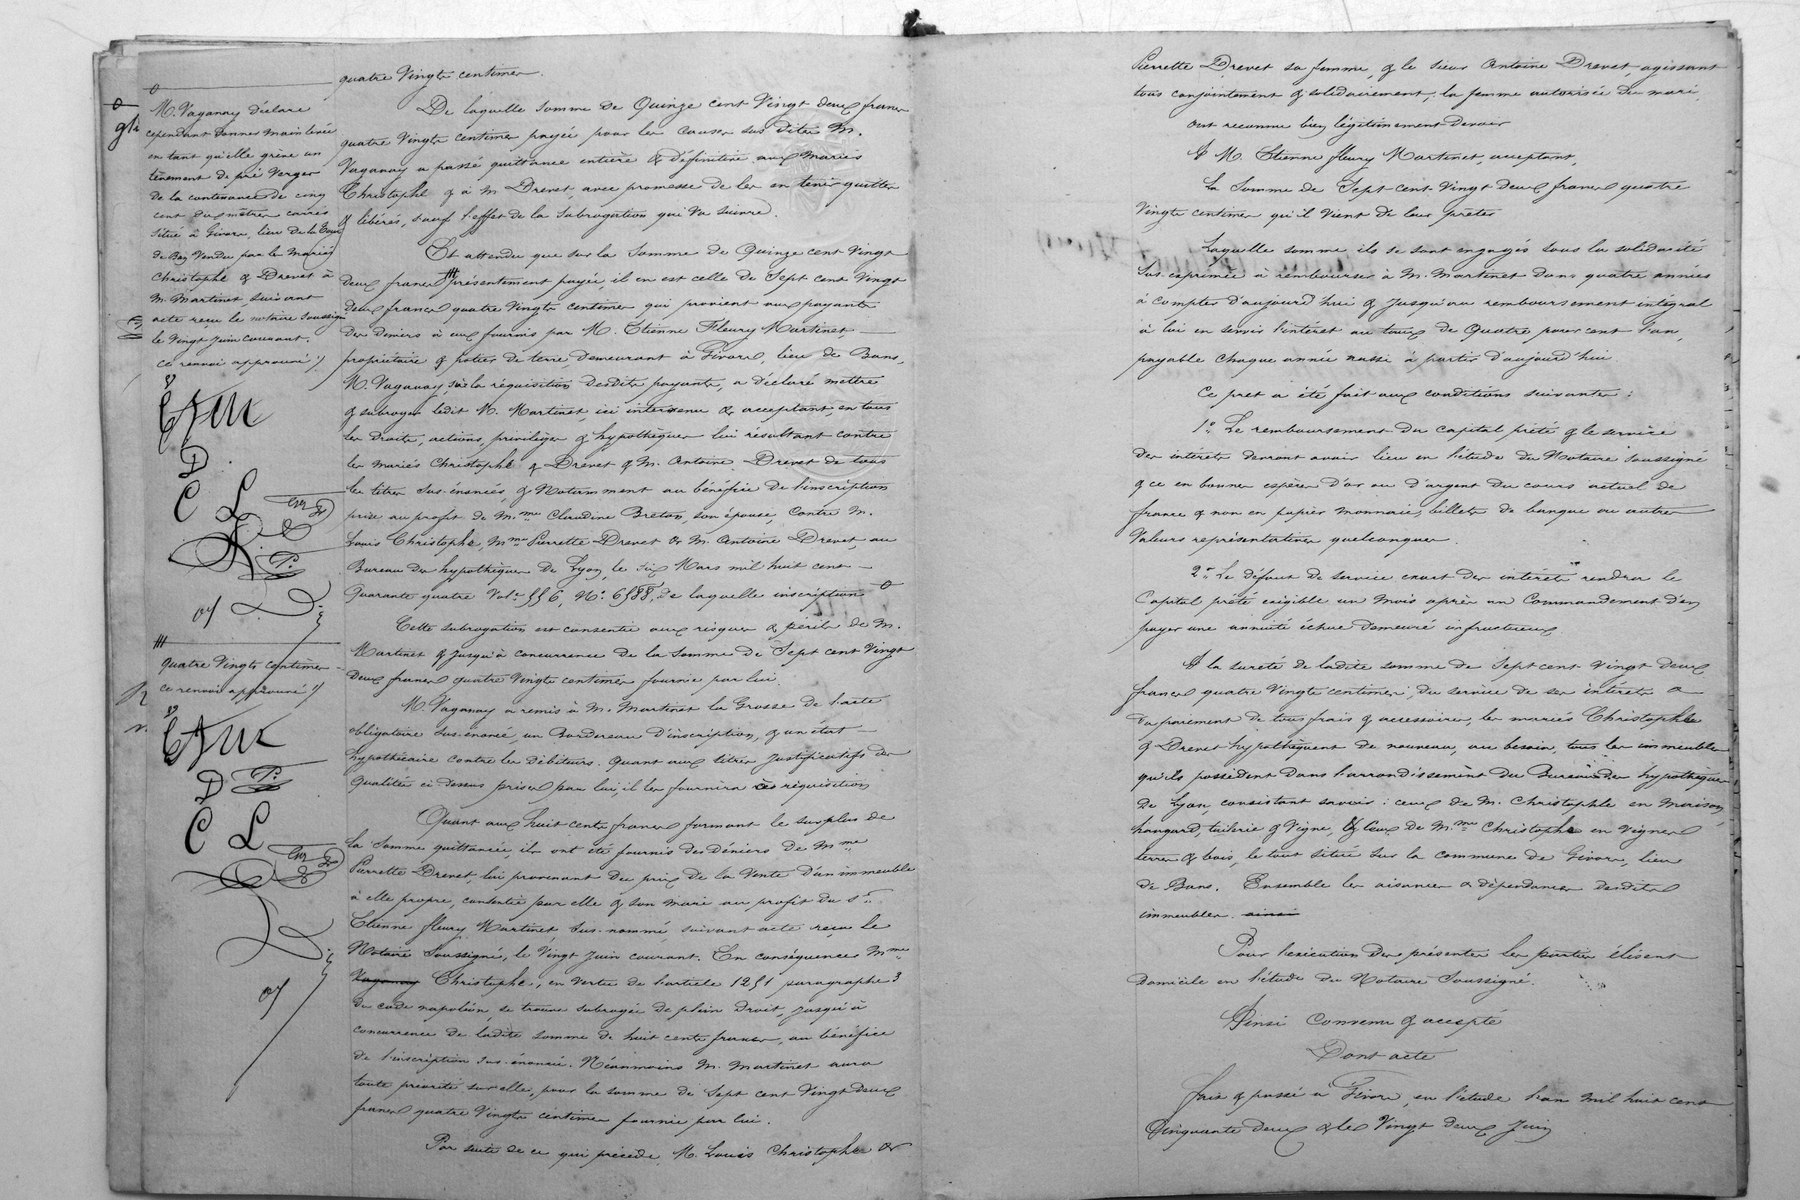 quatre Vingts centimes.
De laquelle somme de Quinze cent Vingt deux francs
quatre Vingts centimes payée pour les causes sus dites M.
Vaganay a passé quittance entière & définitive aux mariés
Christophe & à M. Drevet, avec promesse de les en tenir quittes
& libérés, sauf l'effet de la subrogation qui Va suivre.
Et attendu que sur la somme de Quinze cent Vingt
deux francs présentement payée, il en est celle de Sept cent Vingt
deux francs quatre Vingts centimes qui provient aux payants
des deniers à eux fournis par M. Etienne Fleury Martinet,
propriétaire & potier de terre, demeurant à Givors, lieu de Bans,
M. Vaganay, sur la réquisition desdits payants, a déclaré mettre
& subroger ledit M. Martinet, ici intervenu & acceptant, en tous
les droits, actions, privilèges & hypothèques lui résultant contre
les mariés Christophe & Drevet & M. Antoine Drevet de tous
les titres sus-énoncés, & Notamment au bénéfice de l'inscription
prise au profit de M.me Claudine Breton, son épouse, contre M.
Louis Christophe, M.me Pierrette Drevet & M. Antoine Drevet, au
Bureau des hypothèques de Lyon, le six Mars mil huit cent
Quarante quatre Vol. 556, N.o 6588, de laquelle inscription
Cette subrogation est consentie aux risques & périls de M.
Martinet & jusqu'à concurrence de la somme de Sept cent Vingt
Deux francs quatre Vingts centimes fournie par lui.
M. Vaganay a remis à M. Martinet la Grosse de l'acte
obligatoire sus-énoncé, un Bordereau d'inscription, & un état
hypothécaire contre les débiteurs. Quant aux titres justificatifs des
Qualités ci-dessus prises par lui, il les fournira à réquisition
Quant aux huit cents francs formant le surplus de
la somme quittancée, ils ont été fournis des Déniers de M.me
Pierrette Drevet, lui provenant du prix de la Vente d'un immeuble
à elle propre, consentie par elle & son mari au profit du s.r
Etienne fleury Martinet sus-nommé, suivant acte reçu le
Notaire Soussigné, le Vingt Juin courant. En conséquence M.me
Vaganay Christophe, en vertu de l'article 1251 paragraphe 3
du code napoléon, se trouve subrogée de plein Droit, jusqu'à
concurrence de ladite somme de huit cents francs, au bénéfice
de l'inscription sus-énoncée. Néanmoins M. Martinet aura
toute priorité sur elle, pour la somme de Sept cent Vingt deux
francs quatre Vingts centimes fournie par lui.
Par suite de ce qui précède, M. Louis Christophe &
M. Vaganay déclare
cependant donner main levée
en tant qu'elle grève un
tènement de pré Verger
de la contenance de cinq
cent dix mètres carrés
situé à Givors, lieu de la Tour
de Bay Vendu par les Mariés
Christophe & Drevet à
M. Martinet suivant
acte reçu le notaire soussigné
le Vingt juin courant.
ce renvoi approuvé
D
C L
quatre Vingts centimes
ce renvoi approuvé
D
C L
Pierrette Drevet sa femme, & le sieur Antoine Drevet, agissant
tous conjointement & solidairement, la femme autorisée du mari,
ont reconnu bien légitimement devoir
A M. Etienne fleury Martinet, acceptant,
La Somme de Sept cent Vingt deux francs quatre
Vingts centimes qu'il Vient de leur prêter
Laquelle somme ils se sont engagés sous la solidarité
sus-exprimée à rembourser à M. Martinet dans quatre années
à compter d'aujourd'hui & jusqu'au remboursement intégral
à lui en servir l'intérêt au taux de Quatre pour cent l'an,
payable chaque année aussi à partir d'aujourd'hui.
Ce prêt a été fait aux conditions suivantes :
1.o Le remboursement du capital prêté & le service
des intérêts devront avoir lieu en l'étude du Notaire soussigné
& ce en bonnes espèces d'or ou d'argent du cours actuel de
france & non en papier monnaie, billets de banque ou autres
Valeurs représentatives quelconques.
2.o Le défaut de service exact des intérêts rendra le
Capital prêté exigible un Mois après un Commandement d'en
payer une annuité échue demeuré infructueux
A la sureté de ladite somme de Sept cent Vingt deux
francs quatre Vingts centimes, du service de ses intérêts &
du paiement de tous frais & accessoires, les mariés Christophe
& Drevet hypothèquent de nouveau, au besoin, tous les immeubles
qu'ils possèdent dans l'arrondissement du Bureau des hypothèques
de Lyon consistant savoir : ceux de M. Christophe en maison,
hangard, tuilerie & Vigne, & Ceux de M.me Christophe en Vignes
terres & bois, le tout situé sur la commune de Givors, lieu
de Bans. Ensemble les aisances & dépendances desdits
immeubles. ainsi
Pour l'exécution des présentes les parties élisent
domicile en l'étude du Notaire Soussigné.
Ainsi convenu & accepté
Dont acte
Fait & passé à Givors, en l'étude l'an mil huit cent
Cinquante deux & le Vingt deux Juin